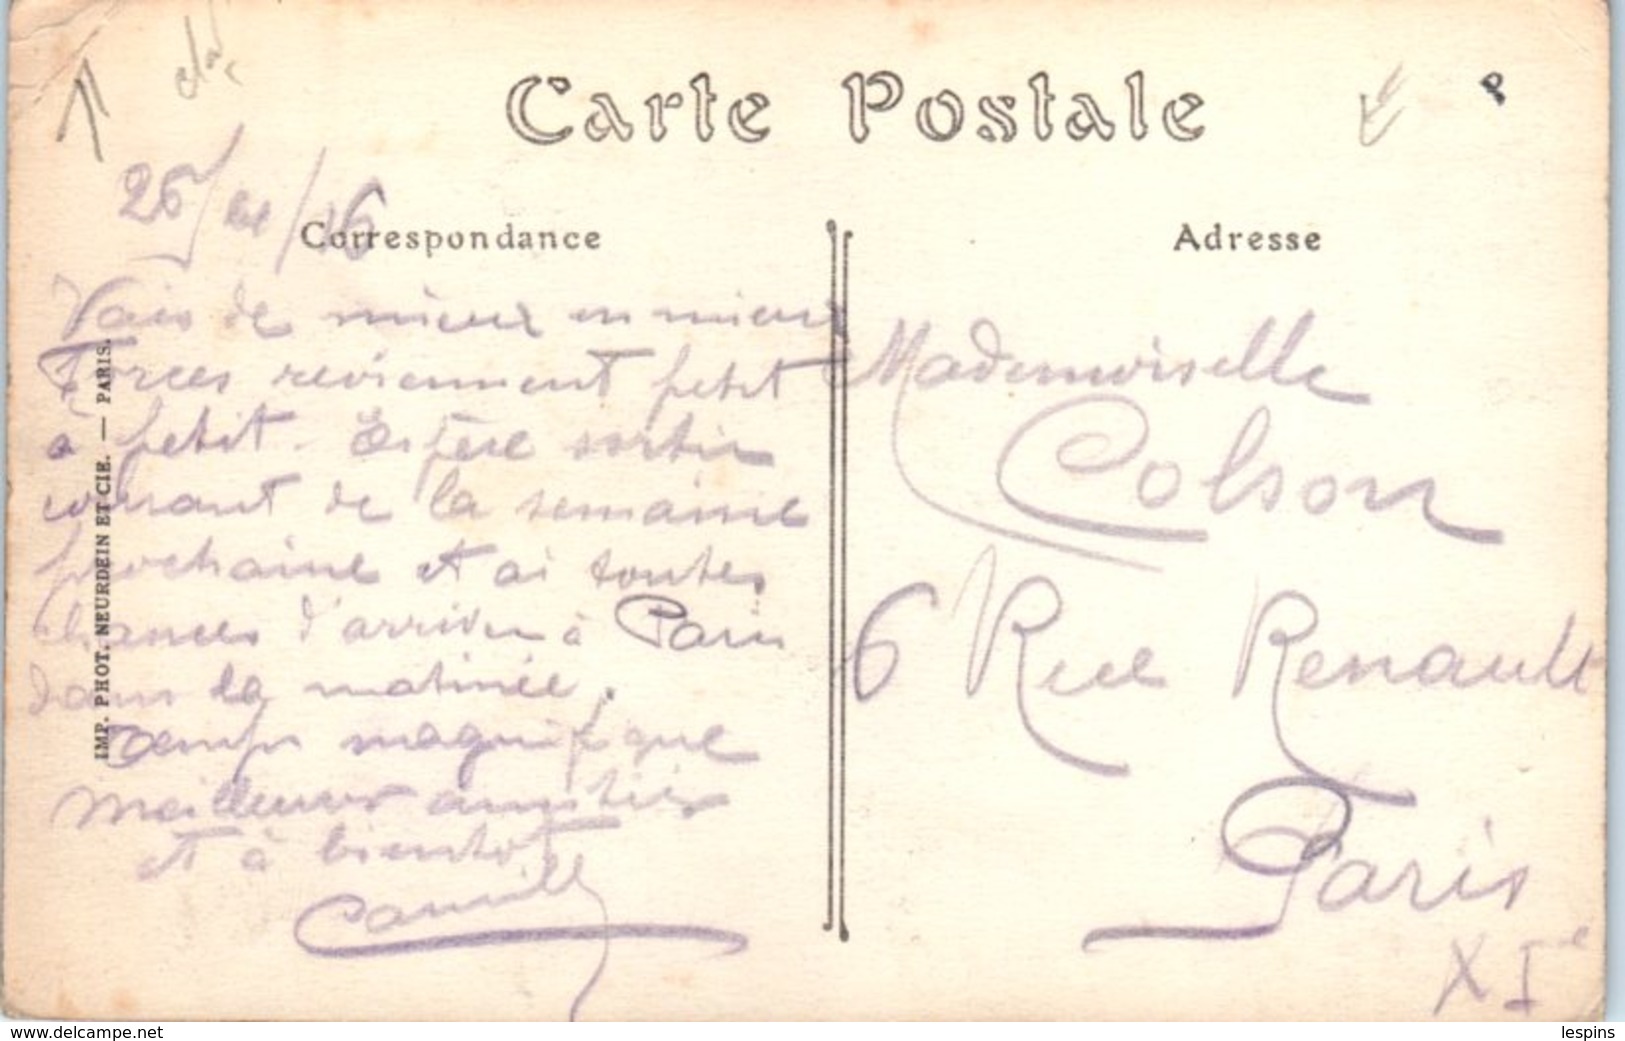 Carte Postale
P
Correspondance
Adresse
Vais de mieux en mieux
Forces reviennent petit
à petit. Espère sortir
courant de la semaine
prochaine et ai toutes
chances d'arriver à Paris
dans la matinée.
Temps magnifique
Meilleures amitiés
et à bientôt
Camille
Mademoiselle
Colson
6 Rue Renault
Paris
XIe
IMP. PHOT. NEURDEIN ET CIE. — PARIS.
www.delcampe.net
lespins